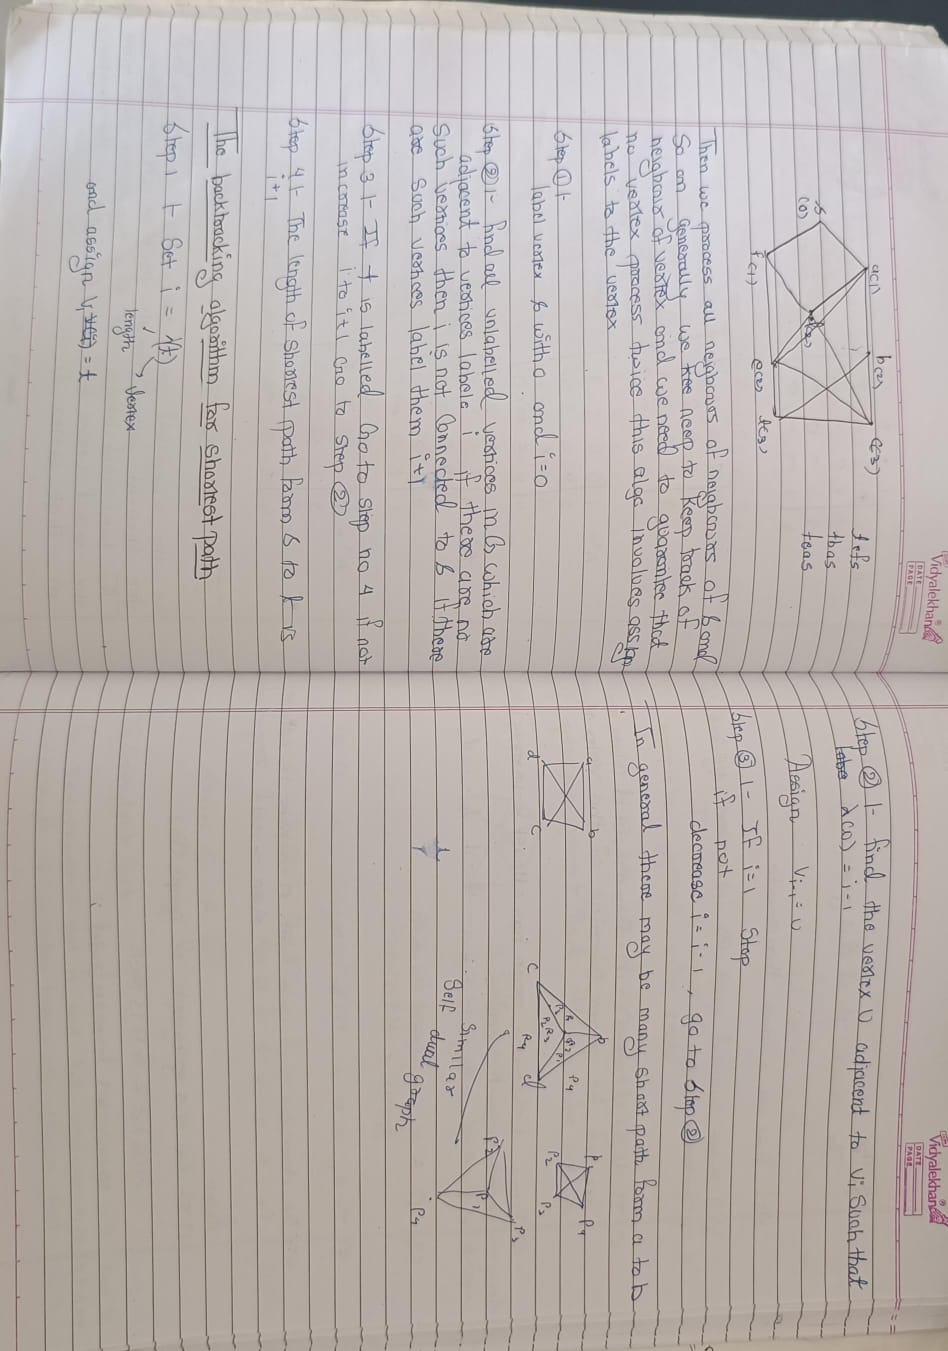 Vidyalekhan
DATE
PAGE
a(1)
b(2)
c(3)
S
(0)
f(1)
e(2)
t(3)
tefs
tbas
teas
Then we process all neigbours of neigbours of b and
So on generally we need to keep track of
neigbour of vertex and we need to guarantee that
no vertex process twice this algo involves assign
labels to the vertex
Step ① :-
label vertex s with 0 and i=0
Step ② :- find all unlabelled vertices in G which are
adjacent to vertices labele i if there are no
such vertices then i is not Connected to s if there
are such vertices label them i+1
Step 3 :- If t is labelled Go to Step no 4 if not
increase i to i+1 Go to Step ②
Step 4 :- The length of shortest path form s to t is
i+1
The backtracking algorithm for shortest path
Step 1 :- Set i = λ(t)
length
Vertex
and assign Vi = t
Vidyalekhan
DATE
PAGE
Step ② :- find the vertex U adjacent to Vi such that
λ(U) = i-1
Assign Vi-1 = U
Step ③ :- If i=1 Stop
if not
decrease i = i-1, go to Step ②
In general there may be many short path form a to b
a
b
d
c
b
P4
c
d
R4
P4
P2
P3
P3
P2
P1
P4
Similar
Self dual
graph